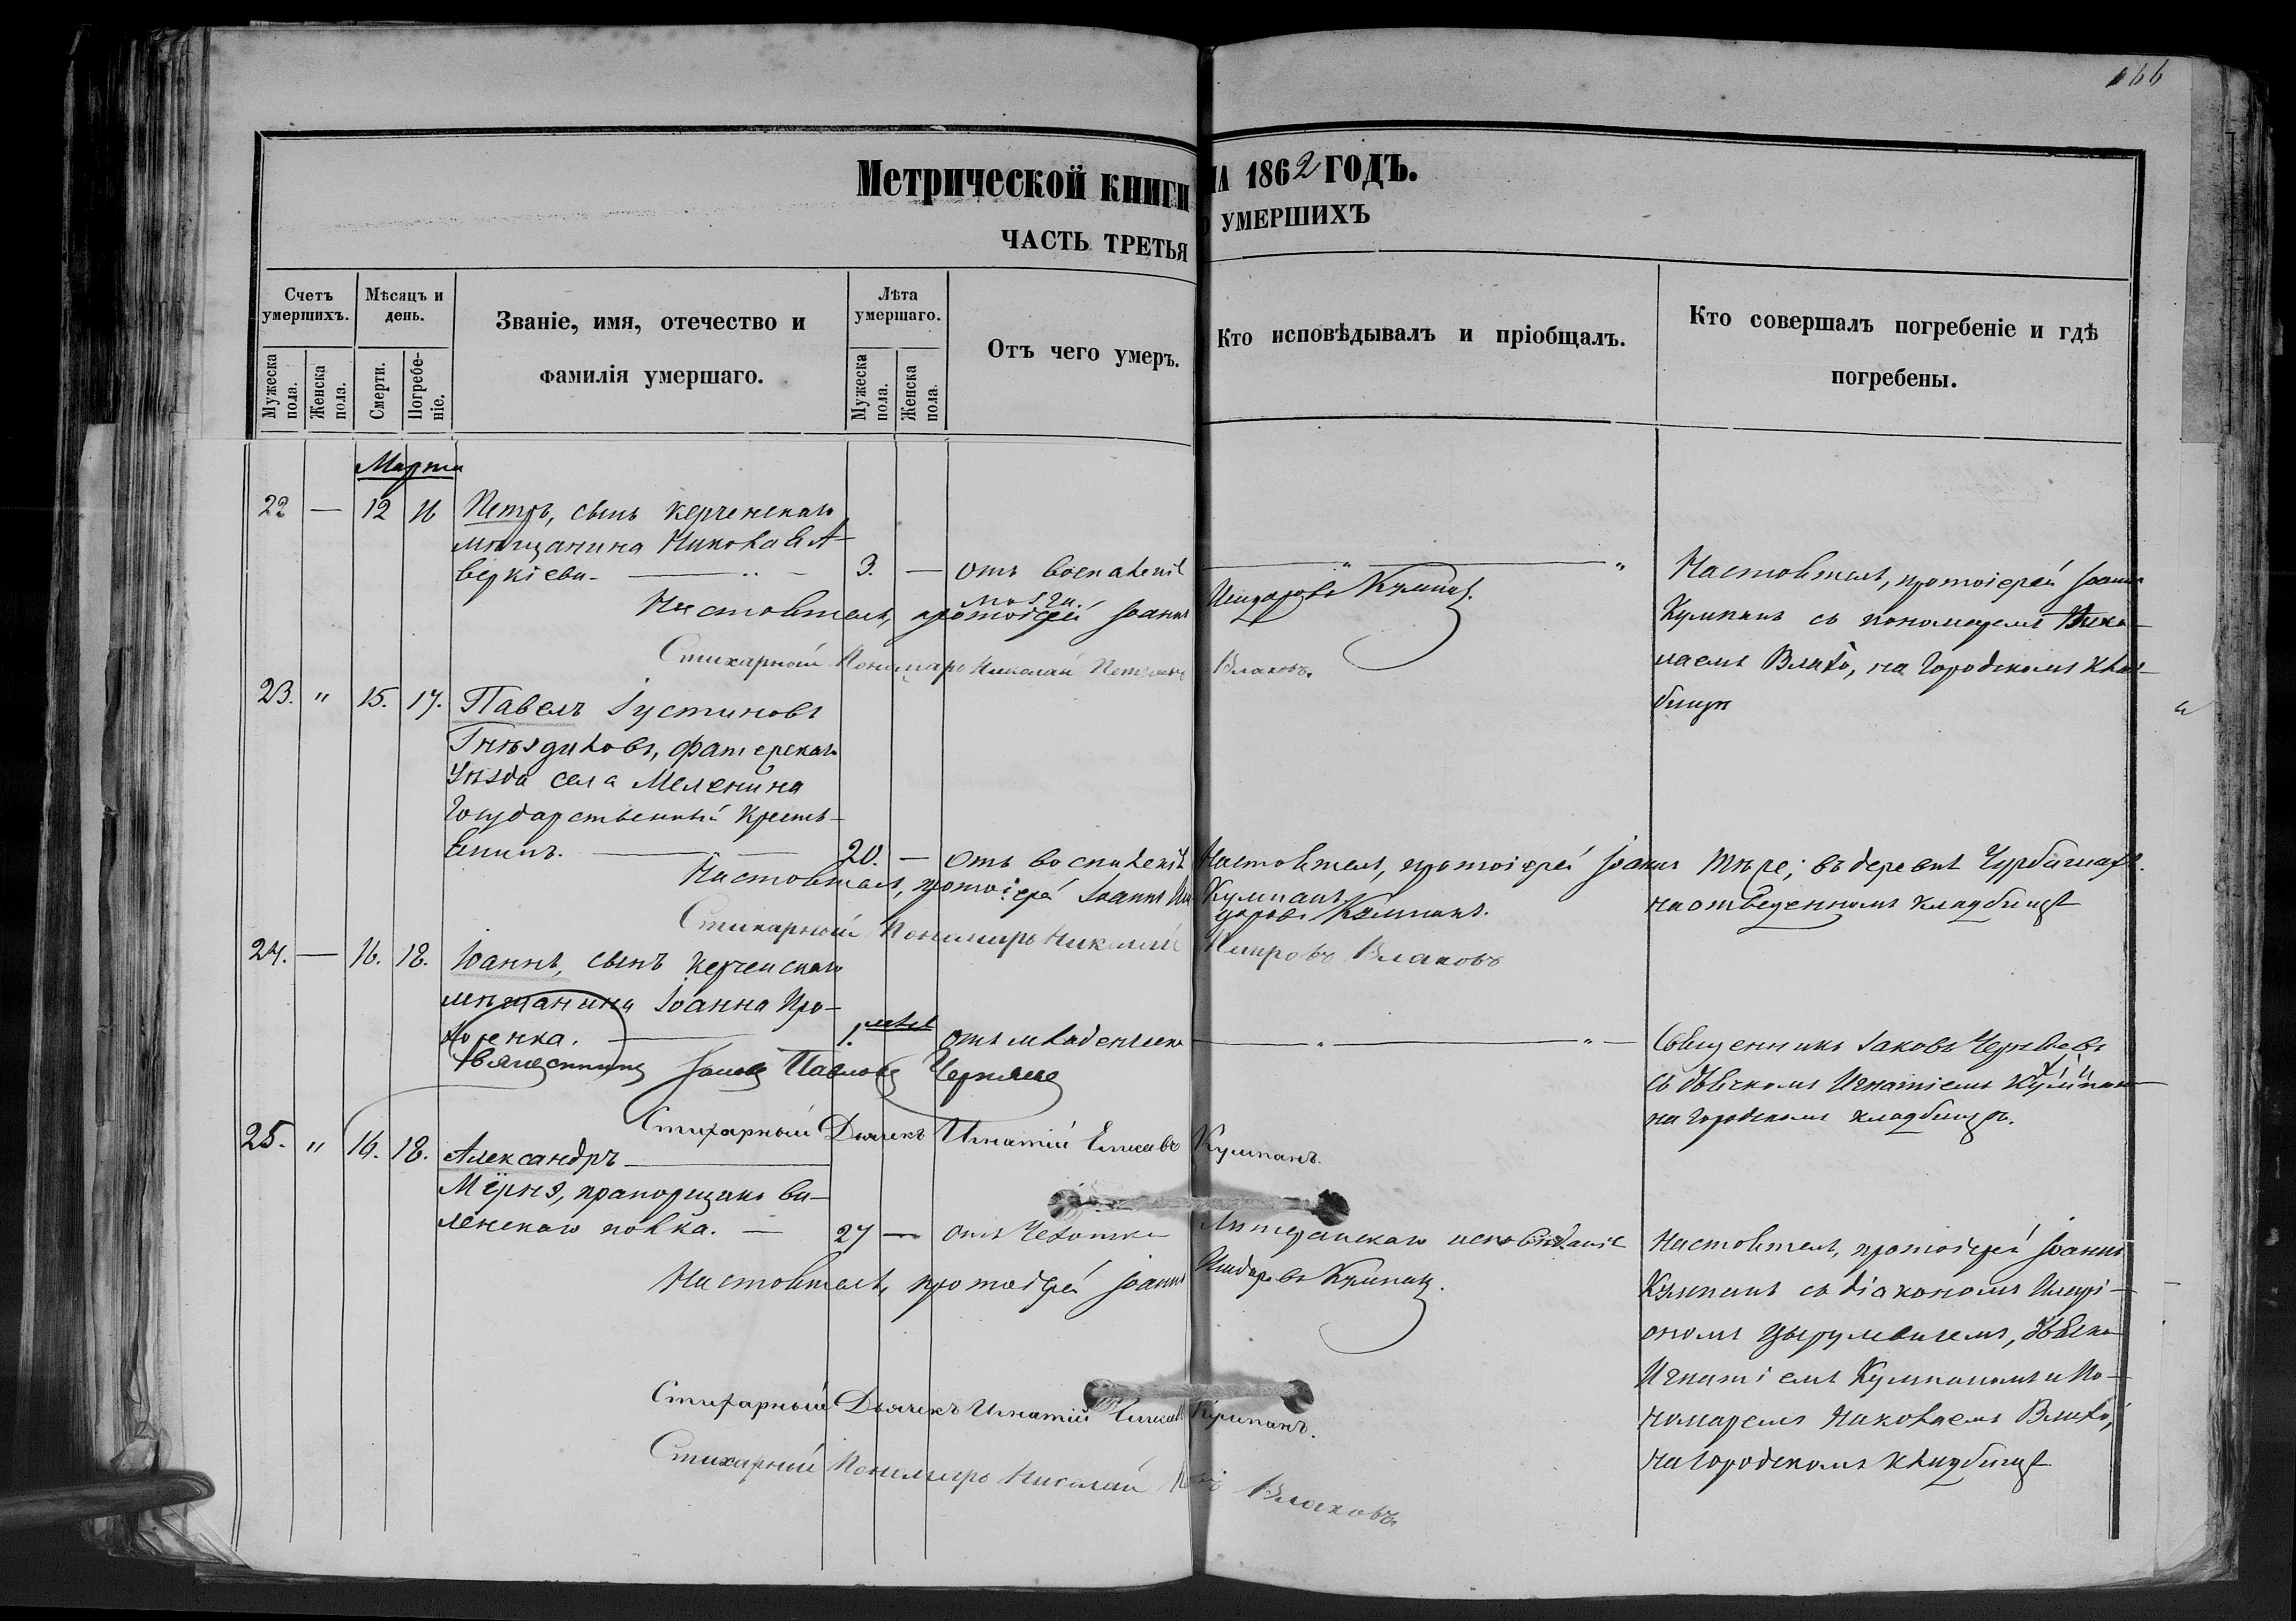 166
Метрической книги НА 1862 ГОДЪ.
ЧАСТЬ ТРЕТЬЯ О УМЕРШИХЪ
Счетъ умершихъ.
Мужеска пола.
Женска пола.
Мѣсяцъ и день.
Смерти.
Погребеніе.
Званіе, имя, отечество и
фамилія умершаго.
Лѣта умершаго.
Мужеска пола.
Женска пола.
Отъ чего умеръ.
Кто исповѣдывалъ и пріобщалъ.
Кто совершалъ погребеніе и гдѣ
погребены.
Марта
22 — 12 16 Петръ, сынъ керченскаго
мѣщанина Николая А-
веркіева. — 3. — отъ воспаленія
мозга.
Настоятель, протоіерей Іоаннъ Исидоровъ Кумпанъ.
Стихарный Пономарь Николай Петровъ Влаховъ.
Настоятель, протоіерей Іоаннъ
Кумпанъ съ пономаремъ Нико-
лаемъ Влахо, на городскомъ клад-
бищѣ
23. " 15. 17. Павелъ Іустиновъ
Гнѣздиловъ, фатерскаго
Уѣзда села Меленина
Государственный кресть-
янинъ. — 20. — отъ воспаленія
Настоятель, протоіерей Іоаннъ
Кумпанъ
Тѣже; въ деревнѣ Чурбашахъ.
на отведенномъ кладбищѣ
Настоятель, протоіерей Іоаннъ Исидоровъ Кумпанъ.
Стихарный Пономарь Николай Петровъ Влаховъ
24. — 16. 18. Іоаннъ, сынъ керченскаго
мѣщанина Іоанна Про-
хоренка. — 1. мѣс отъ младенческ
Священникъ Іаковъ Чернявъ
съ дьячкомъ Игнатіемъ Кумпан
на городскомъ кладбищѣ.
Священникъ Іаковъ Павловъ Чернявс
Стихарный Дьячекъ Игнатій Елисѣевъ Кумпанъ.
25. " 16. 18. Александръ —
Мёрнз, прапорщикъ ви-
ленскаго полка. — 27 — отъ чахотки
Лютеранскаго исповѣданія
Настоятель, протоіерей Іоаннъ
Кумпанъ съ діакономъ Илари-
ономъ Цырулевичемъ, дьячко
Игнатіемъ Кумпаномъ и По-
номаремъ Николаемъ Влахо,
на городскомъ кладбищѣ
Настоятель, протоіерей Іоаннъ Исидоровъ Кумпанъ.
Стихарный Дьячекъ Игнатій Елисѣевъ Кумпанъ.
Стихарный Пономарь Николай Влаховъ.